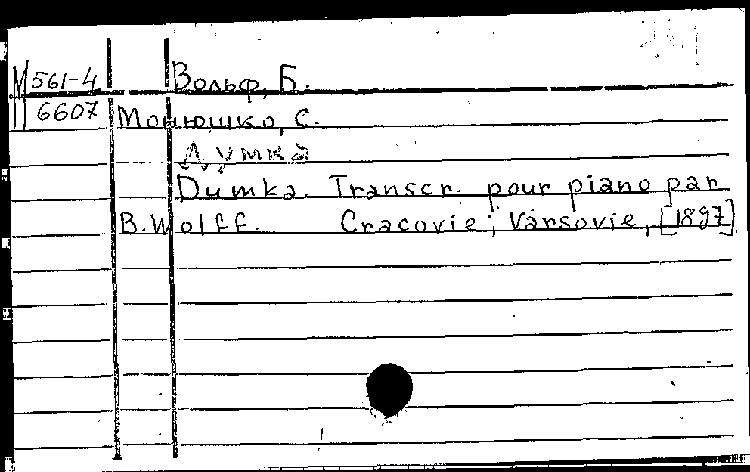 М 561-4 Вольф, Б.
6607 Монюшко, С.
Думка
Dumka. Transcr. pour piano par
B. Wolff. Cracovie; Varsovie, [1897]